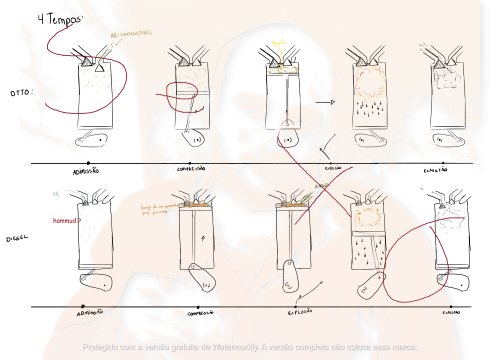 4 Tempos:
AR-COMBUSTÍVEL
OTTO:
ADMISSÃO
COMPRESSÃO
EXPLOSÃO
EXAUSTÃO
AR
hammud
DIESEL
ADMISSÃO
COMPRESSÃO
EXPLOSÃO
EXAUSTÃO
Protegido com a versão gratuita de Watermarkly. A versão completa não coloca essa marca.